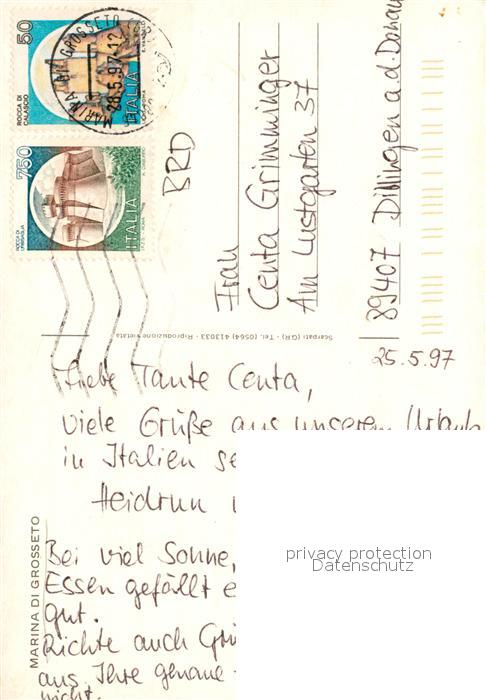 50
ITALIA
ROCCA DI
CALASCIO
MARINA DI GROSSETO
28.5.97-12
750
ITALIA
ROCCA DI
URBISAGLIA
BRD
Frau
Centa Grimminger
Am Lustgarten 37
89407 Dillingen a.d. Donau
Scarpati (GR) - Tel. (0564) 413033 - Riproduzione vietata
25.5.97
Liebe Tante Centa,
viele Grüße aus unserem Urlaub
in Italien se
Heidrun
Bei viel Sonne,
Essen gefällt e
gut.
Richte auch Grü
aus, Ihre genaue
nicht.
MARINA DI GROSSETO
privacy protection
Datenschutz